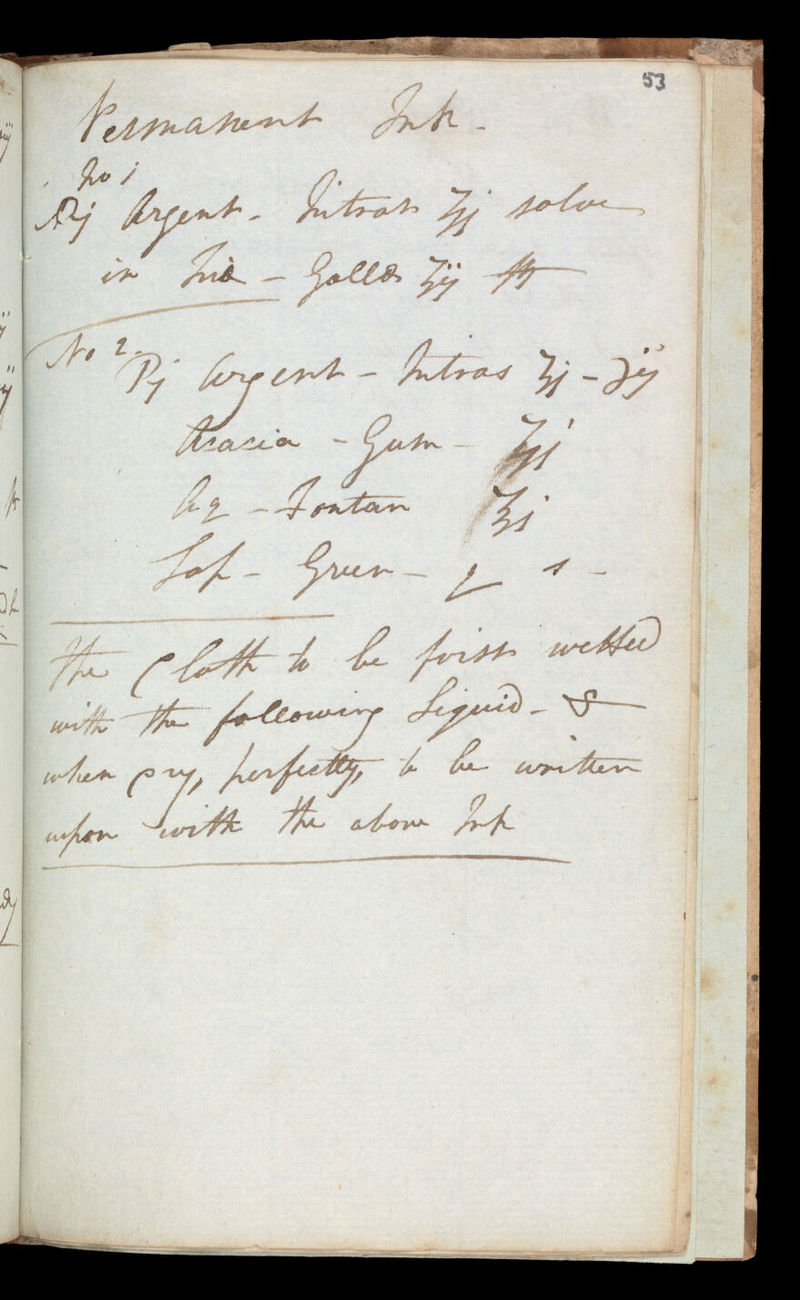 53
Permanent Ink -
No 1
℞ Argent - Nitrat ʒj solve
in Tinc - Galls ʒij ft
No 2
℞ Argent - Nitras ʒj - ℈ij
Acacia - Gum - ʒj
Aq - Fontan ℥j
Sap - Green - q s -
The Cloth to be first wetted
with the following Liquid - &
when dry, perfectly, to be written
upon with the above Ink